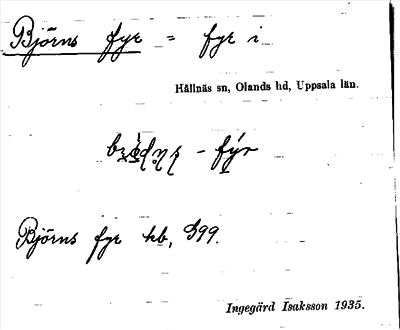 Björns fyr = fyr i
Hållnäs sn, Olands hd, Uppsala län.
- fýr
Björns fyr kb, 399.
Ingegärd Isaksson 1935.